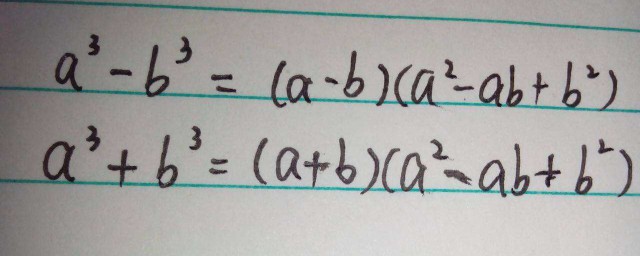 a³-b³=(a-b)(a²-ab+b²)
a³+b³=(a+b)(a²-ab+b²)